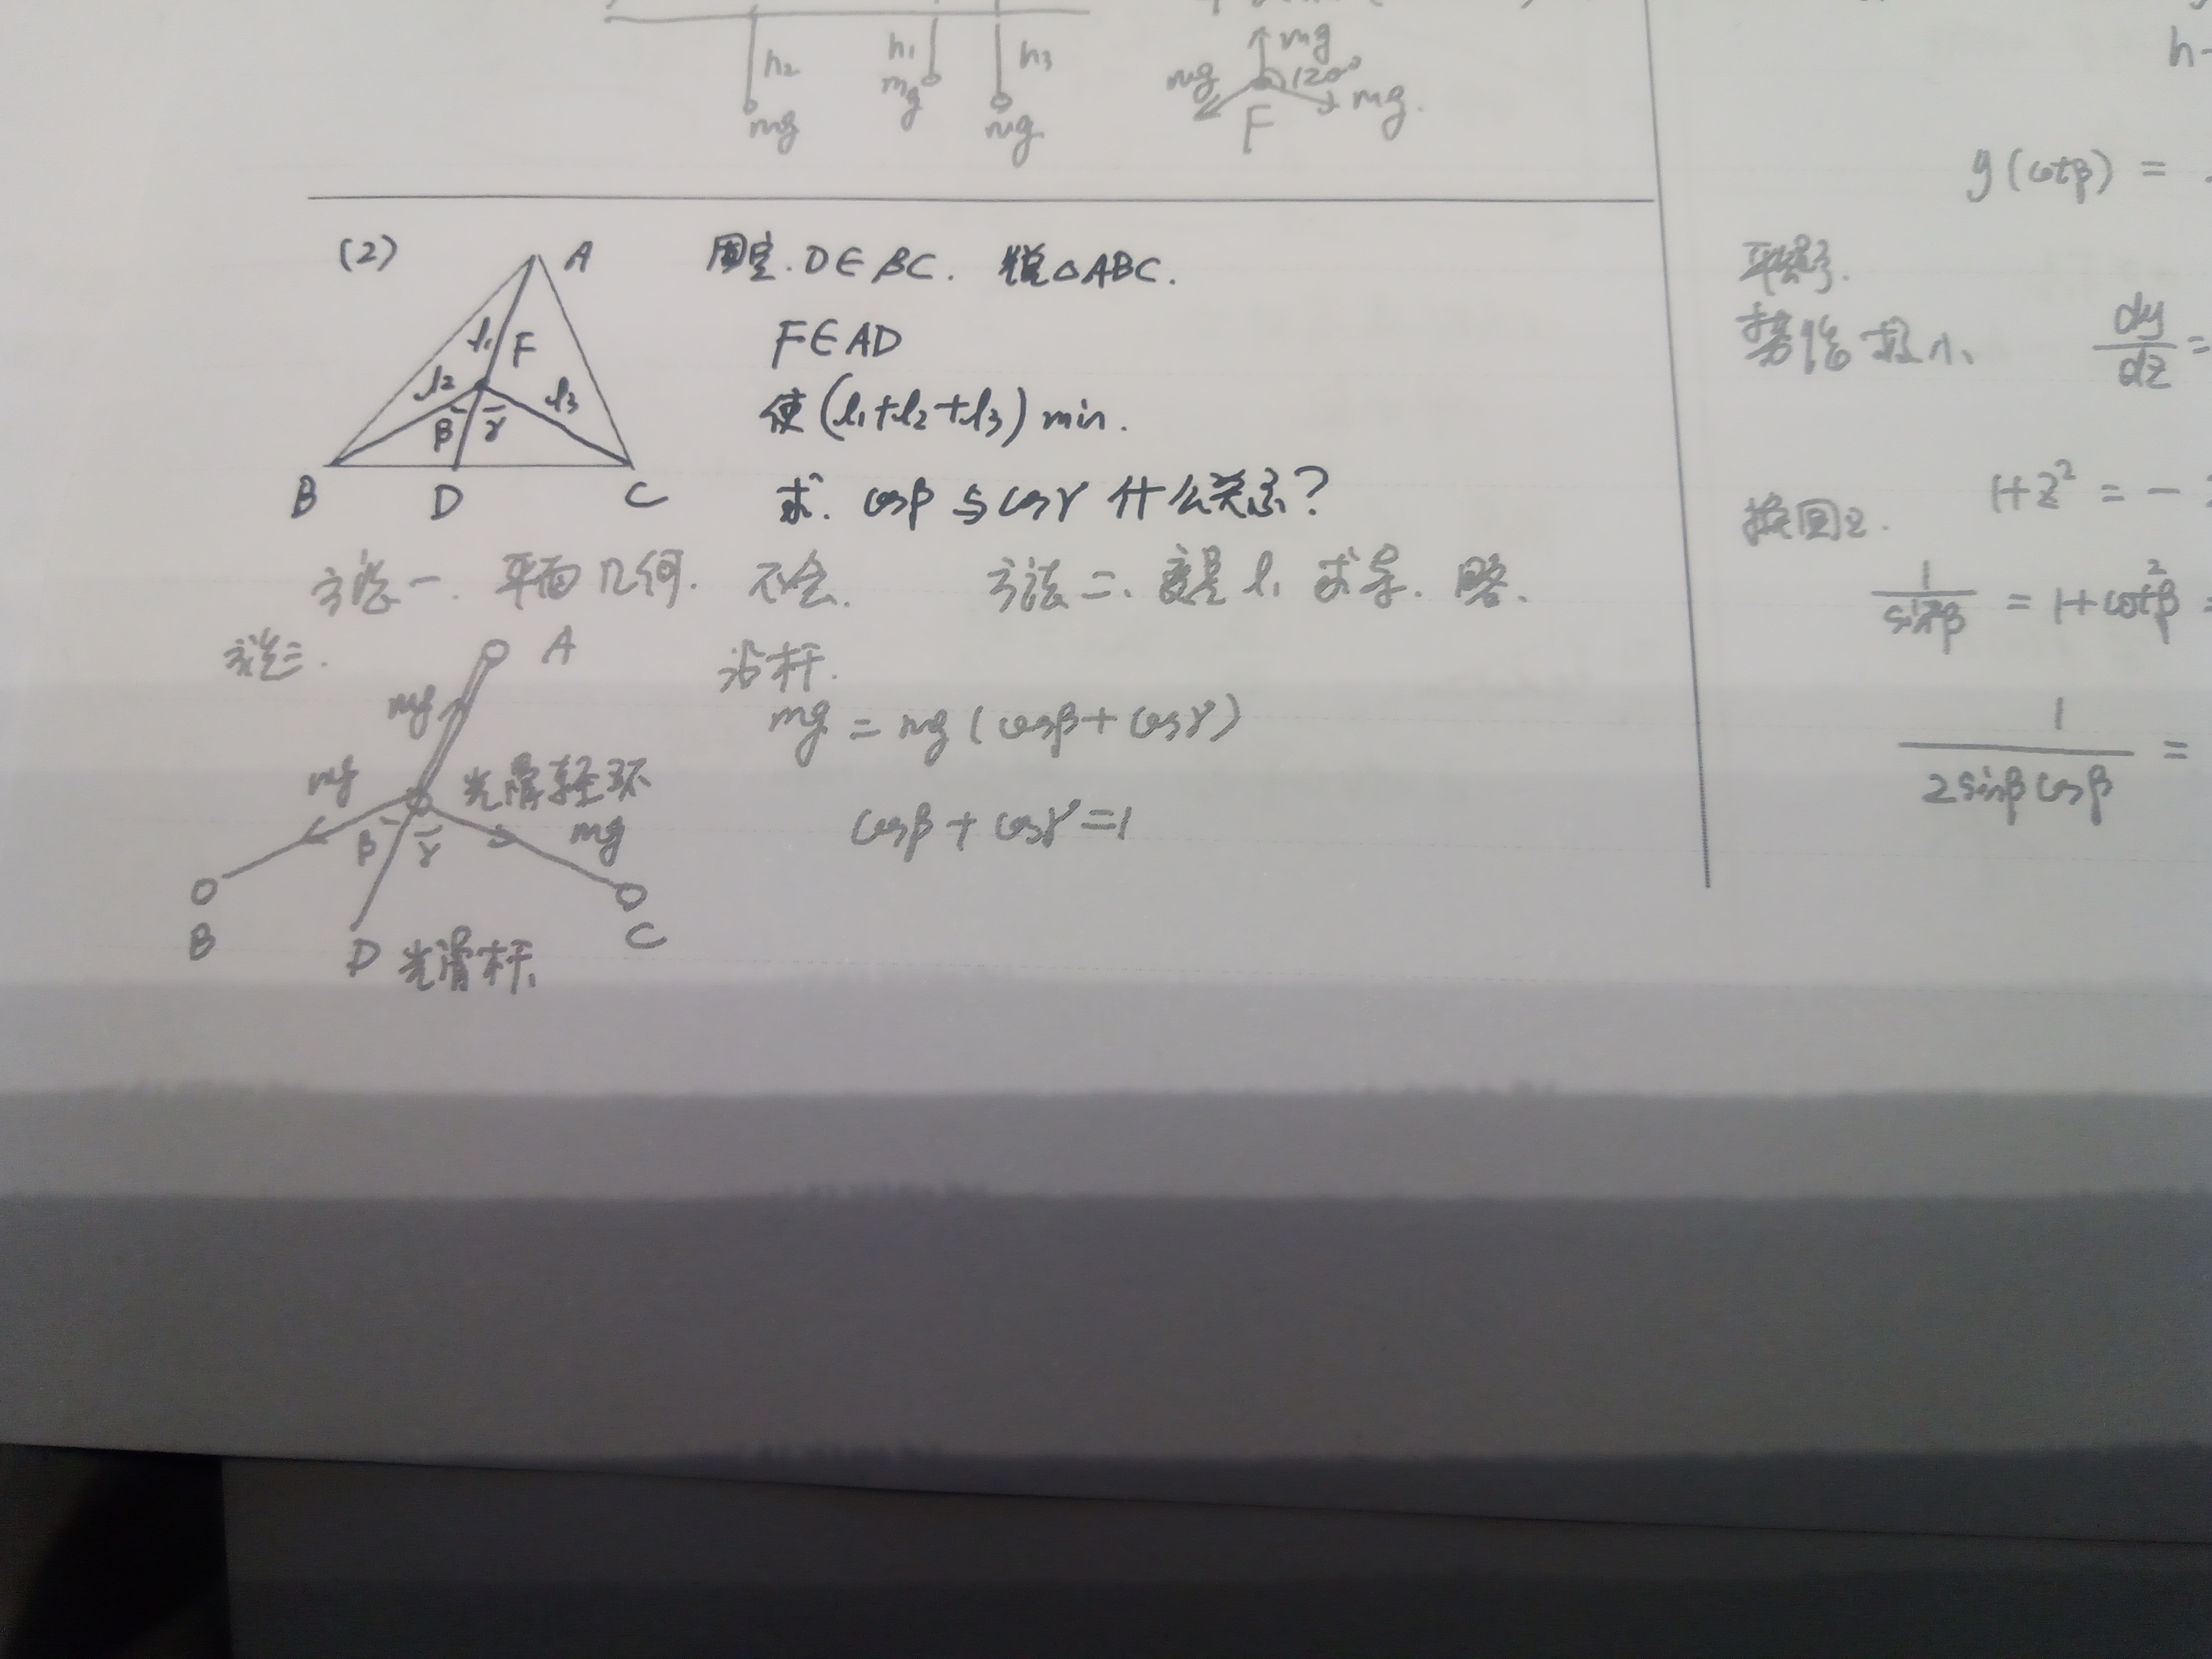 h₂
h₁
h₃
mg
mg
mg
mg
mg
120°
mg.
F
(2)
A
l₁
F
l₂
l₃
β
γ
B
D
C
固定. D∈BC. 锐△ABC.
F∈AD
使(l₁+l₂+l₃) min.
求. cosβ与cosγ 什么关系?
方法一. 平面几何. 不会.
方法二、变量 l₁ 求导. 略.
方法三.
A
mg
mg
光滑轻环
mg
β
γ
B
C
D 光滑杆.
沿杆.
mg = mg (cosβ + cosγ)
cosβ + cosγ = 1
h-
y (cotβ) =
平衡时.
势能最小、
dy/dz =
1+z² = -
换回z.
1/sin²β = 1+cot²β =
1/(2sinβcosβ) =